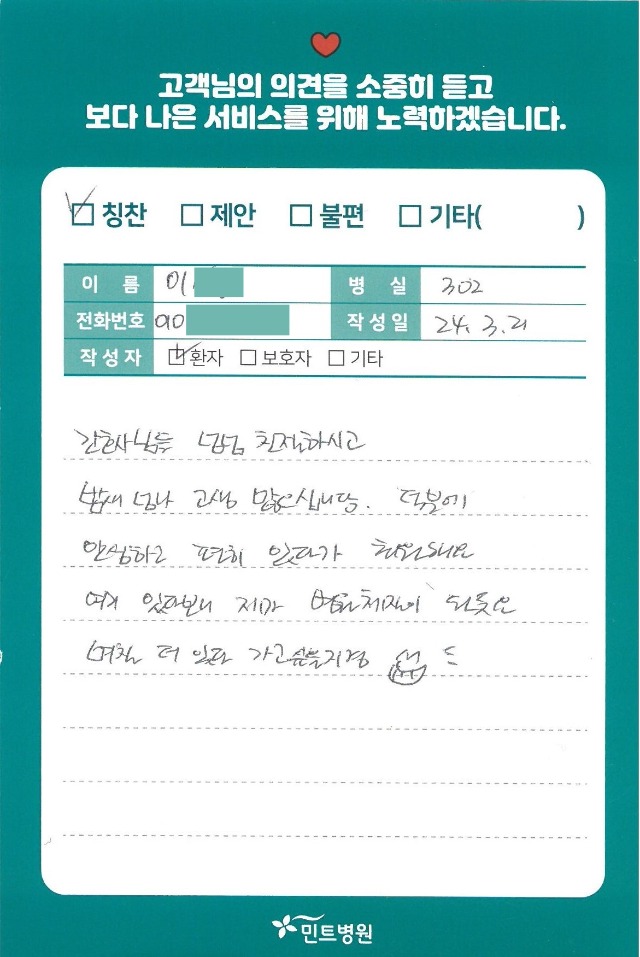 고객님의 의견을 소중히 듣고
보다 나은 서비스를 위해 노력하겠습니다.
칭찬 제안 불편 기타( )
이 름 이 병 실 302
전화번호 010 작성일 24. 3. 21
작성자 환자 보호자 기타
간호사님들 넘넘 친절하시고
밤새 넘나 고생 많으십니당. 덕분에
안심하고 편히 있다가 퇴원해요
여기 있다보니 제가 병원체질이 되듯요
며칠 더 있다 가고 싶을지경
민트병원